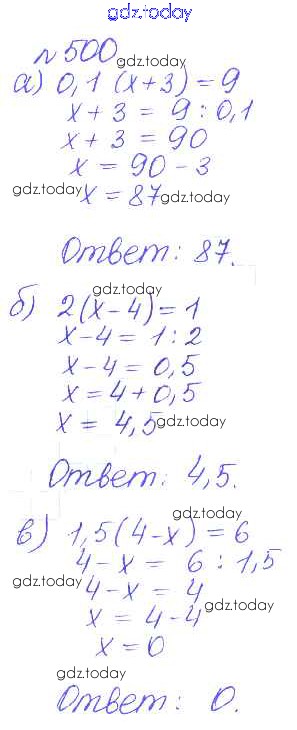 gdz.today
№ 500 gdz.today
а) 0,1 (x+3) = 9
x + 3 = 9 : 0,1
x + 3 = 90
x = 90 - 3
gdz.today x = 87 gdz.today
Ответ: 87.
gdz.today
б) 2(x-4) = 1
x-4 = 1 : 2
x-4 = 0,5
x = 4 + 0,5
x = 4,5 gdz.today
Ответ: 4,5.
gdz.today
в) 1,5(4-x) = 6
4-x = 6 : 1,5
gdz.today
4-x = 4
x = 4-4 gdz.today
x = 0
gdz.today
Ответ: 0.
gdz.today